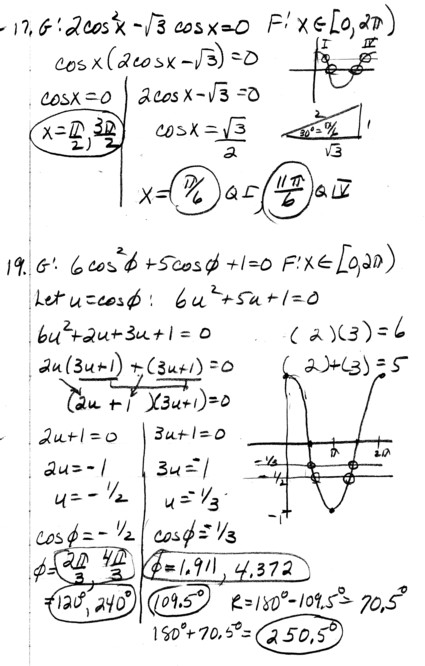 17. G: 2cos²x - √3 cosx = 0 F: x ∈ [0, 2π)
cosx(2cosx - √3) = 0
I IV
cosx = 0 2cosx - √3 = 0
x = π/2, 3π/2 cosx = √3/2
2 1 30° = π/6 √3
x = π/6 QI, 11π/6 QIV
19. G: 6cos²φ + 5cosφ + 1 = 0 F: x ∈ [0, 2π)
Let u = cosφ: 6u² + 5u + 1 = 0
6u² + 2u + 3u + 1 = 0 ( 2 )(3) = 6
2u(3u+1) + (3u+1) = 0 ( 2)+(3) = 5
(2u + 1)(3u+1) = 0
2u+1 = 0 3u+1 = 0
2u = -1 3u = -1
u = -1/2 u = -1/3
π 2π
-1/3
-1/2
-1
cosφ = -1/2 cosφ = -1/3
φ = 2π/3 4π/3 φ = 1.911, 4.372
= 120°, 240° 109.5° R = 180° - 109.5° = 70.5°
180° + 70.5° = 250.5°